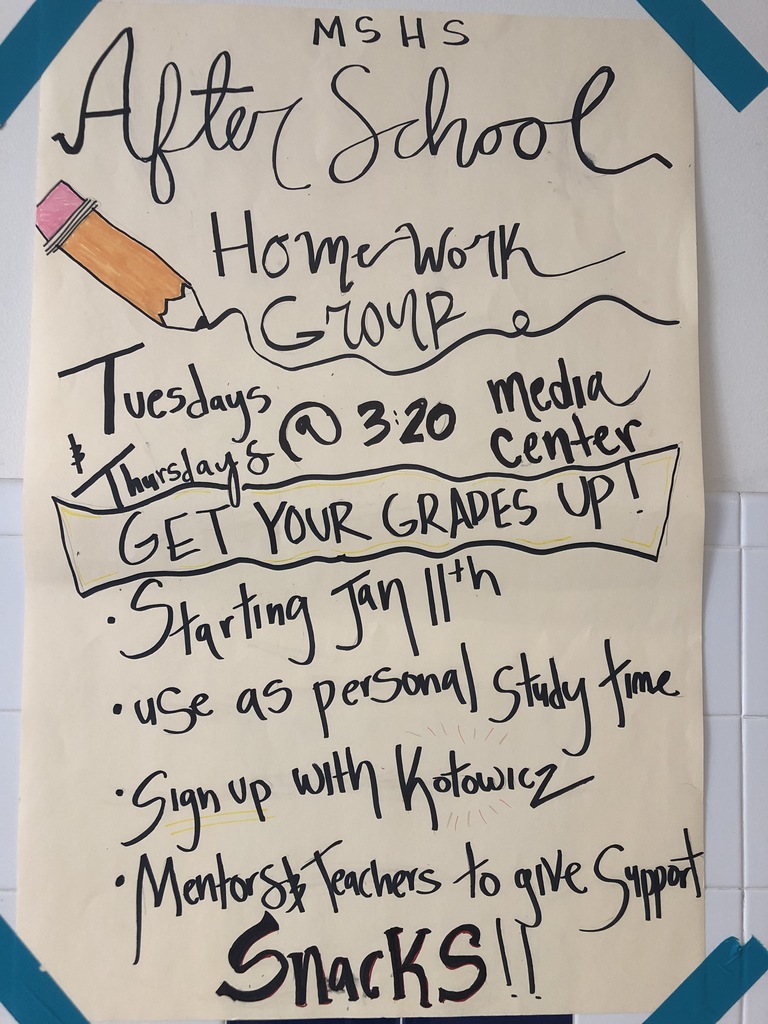 MSHS
After School
Homework
Group
Tuesdays
& Thursdays @ 3:20 media center
GET YOUR GRADES UP!
· Starting Jan 11th
· use as personal study time
· Sign up with Kotowicz
· Mentors & Teachers to give Support
Snacks!!